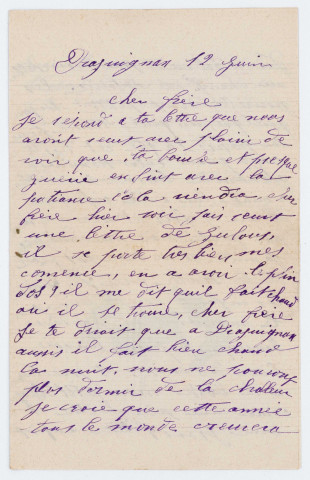 Draguignan 12 Juin
cher frère
Je répond a ta lettre que nous
avont reçut avec plaisir de
voir que ta et presque
enfint avec la
patiance cela viendra, cher
frère hier soir jais recut
une lettre de Zulous,
il se porte tres bien mes
comence, en a avoir plin
dos, il me dit quil fait chaud
ou il se trouve, cher frère
Je te dirait que a Draguignan
aussi il fait bien chaud
la nuit, nous ne pouvont
plus dormir de la chaleur
Je croie que cette année
tous le monde crevera